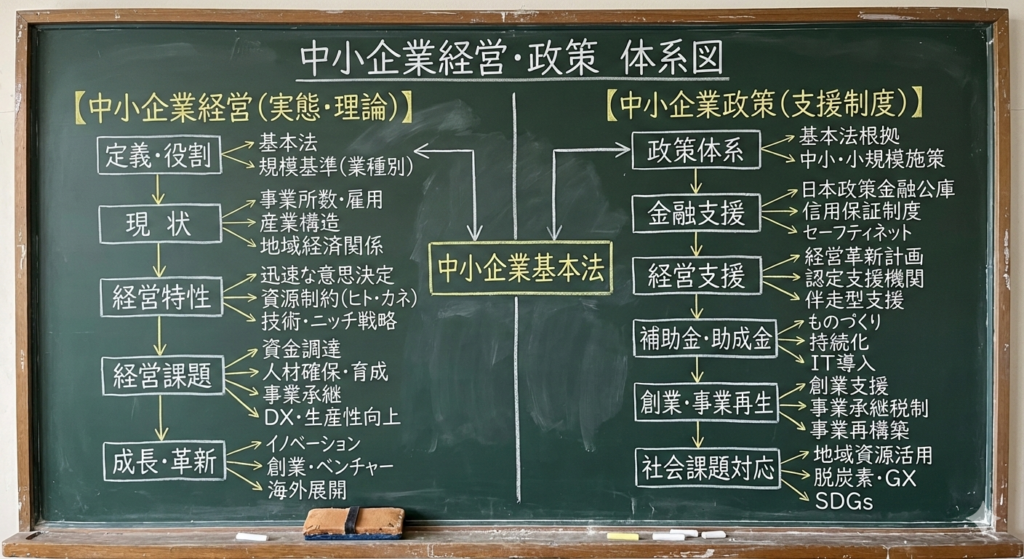 中小企業経営・政策 体系図
【中小企業経営(実態・理論)】
定義・役割
基本法
規模基準(業種別)
現状
事業所数・雇用
産業構造
地域経済関係
経営特性
迅速な意思決定
資源制約(ヒト・カネ)
技術・ニッチ戦略
経営課題
資金調達
人材確保・育成
事業承継
DX・生産性向上
成長・革新
イノベーション
創業・ベンチャー
海外展開
中小企業基本法
【中小企業政策(支援制度)】
政策体系
基本法根拠
中小・小規模施策
金融支援
日本政策金融公庫
信用保証制度
セーフティネット
経営支援
経営革新計画
認定支援機関
伴走型支援
補助金・助成金
ものづくり
持続化
IT導入
創業・事業再生
創業支援
事業承継税制
事業再構築
社会課題対応
地域資源活用
脱炭素・GX
SDGs